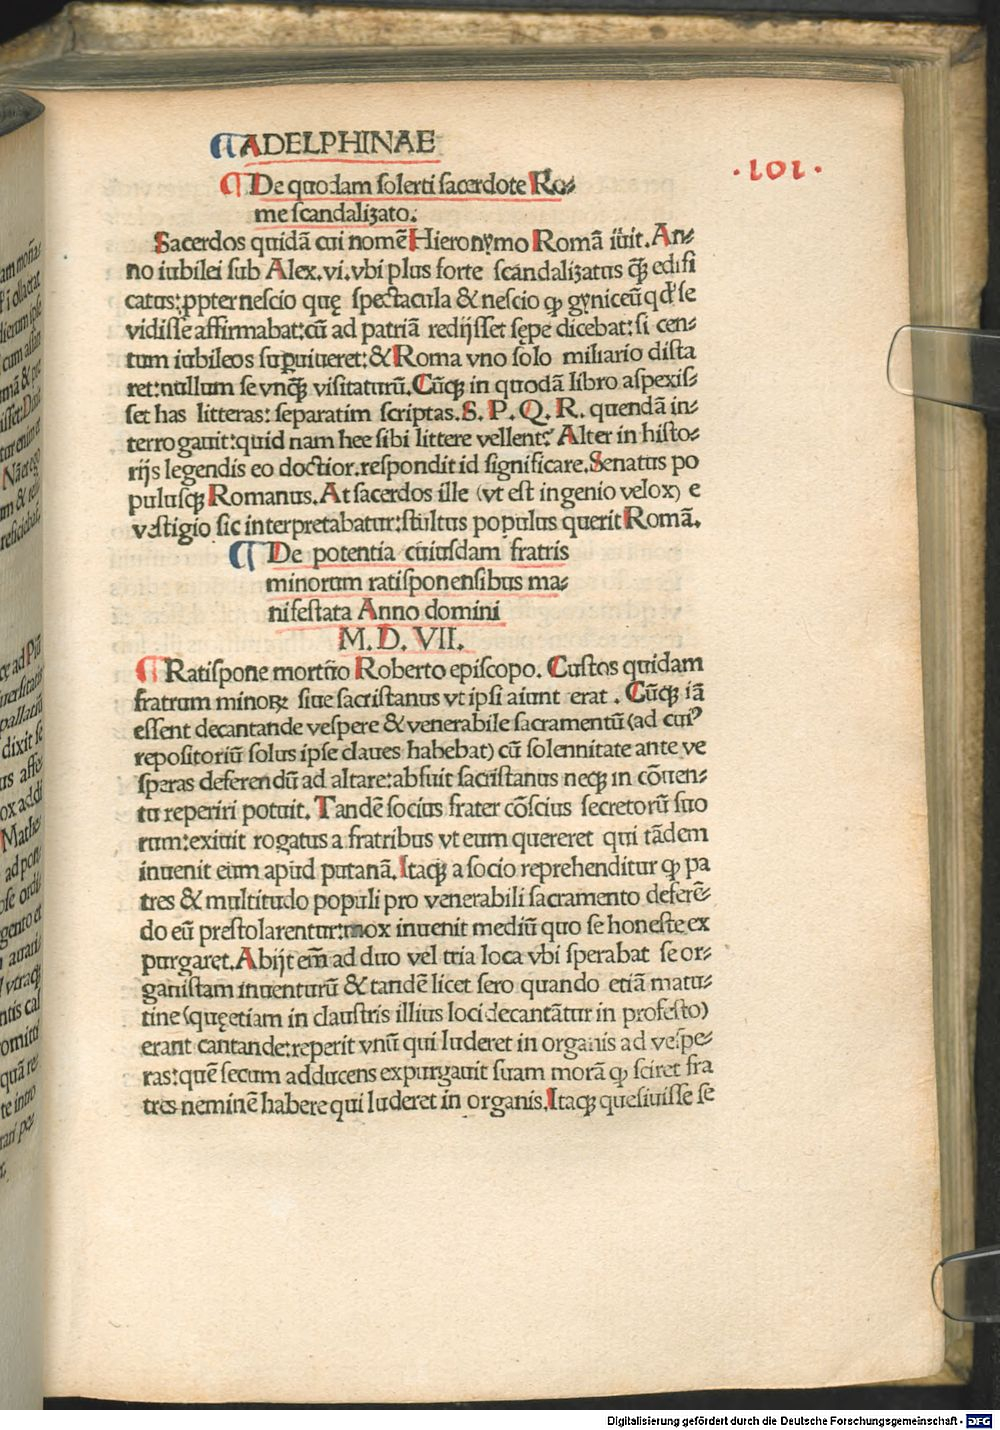 ¶ADELPHINAE
·101·
¶De quodam solerti sacerdote Ro⸗
me scandalizato.
Sacerdos quidā cui nomē Hieronymo Romā iuit. An⸗
no iubilei sub Alex. vi. vbi plus forte scandalizatus ꝗ̄ edifi
catus: ꝓpter nescio quę spectacula & nescio ꝙ gyniceū qd' se
vidisse affirmabat: cū ad patriā redijsset sępe dicebat: si cen⸗
tum iubileos suꝑuiueret: & Roma vno solo miliario dista
ret: nullum se vnꝗ̄ visitaturū. Cūꝗ in quodā libro aspexis⸗
set has litteras: separatim scriptas. S. P. Q. R. quendā in⸗
terrogauit: quid nam hee sibi littere vellent? Alter in histo⸗
rijs legendis eo doctior. respondit id significare. Senatus po
pulusꝗ Romanus. At sacerdos ille (vt est ingenio velox) e
vestigio sic interpretabatur: stultus populus querit Romā.
¶De potentia cuiusdam fratris
minorum ratisponensibus ma⸗
nifestata Anno domini
M. D. VII.
¶Ratispone mortuo Roberto episcopo. Custos quidam
fratrum minoꝝ siue sacristanus vt ipsi aiunt erat. Cūꝗ iā
essent decantande vespere & venerabile sacramentū (ad cuiꝰ
repositoriū solus ipse claues habebat) cū solennitate ante ve
speras deferendū ad altare: absuit sacristanus neꝗ in cōuen⸗
tu reperiri potuit. Tandē socius frater cōscius secretorū suo
rum: exiuit rogatus a fratribus vt eum quereret qui tādem
inuenit eum apud putanā. Itaꝗ a socio reprehenditur ꝙ pa
tres & multitudo populi pro venerabili sacramento deferē⸗
do eū prestolarentur: mox inuenit mediū quo se honeste ex
purgaret. Abijt em̄ ad duo vel tria loca vbi sperabat se or⸗
ganistam inuenturū & tandē licet sero quando etiā matu⸗
tine (quę etiam in claustris illius loci decantātur in profesto)
erant cantande: reperit vnū qui luderet in organis ad vespe⸗
ras: quē secum adducens expurgauit suam morā ꝙ sciret fra
tres neminē habere qui luderet in organis. Itaꝗ quesiuisse se
Digitalisierung gefördert durch die Deutsche Forschungsgemeinschaft - DFG